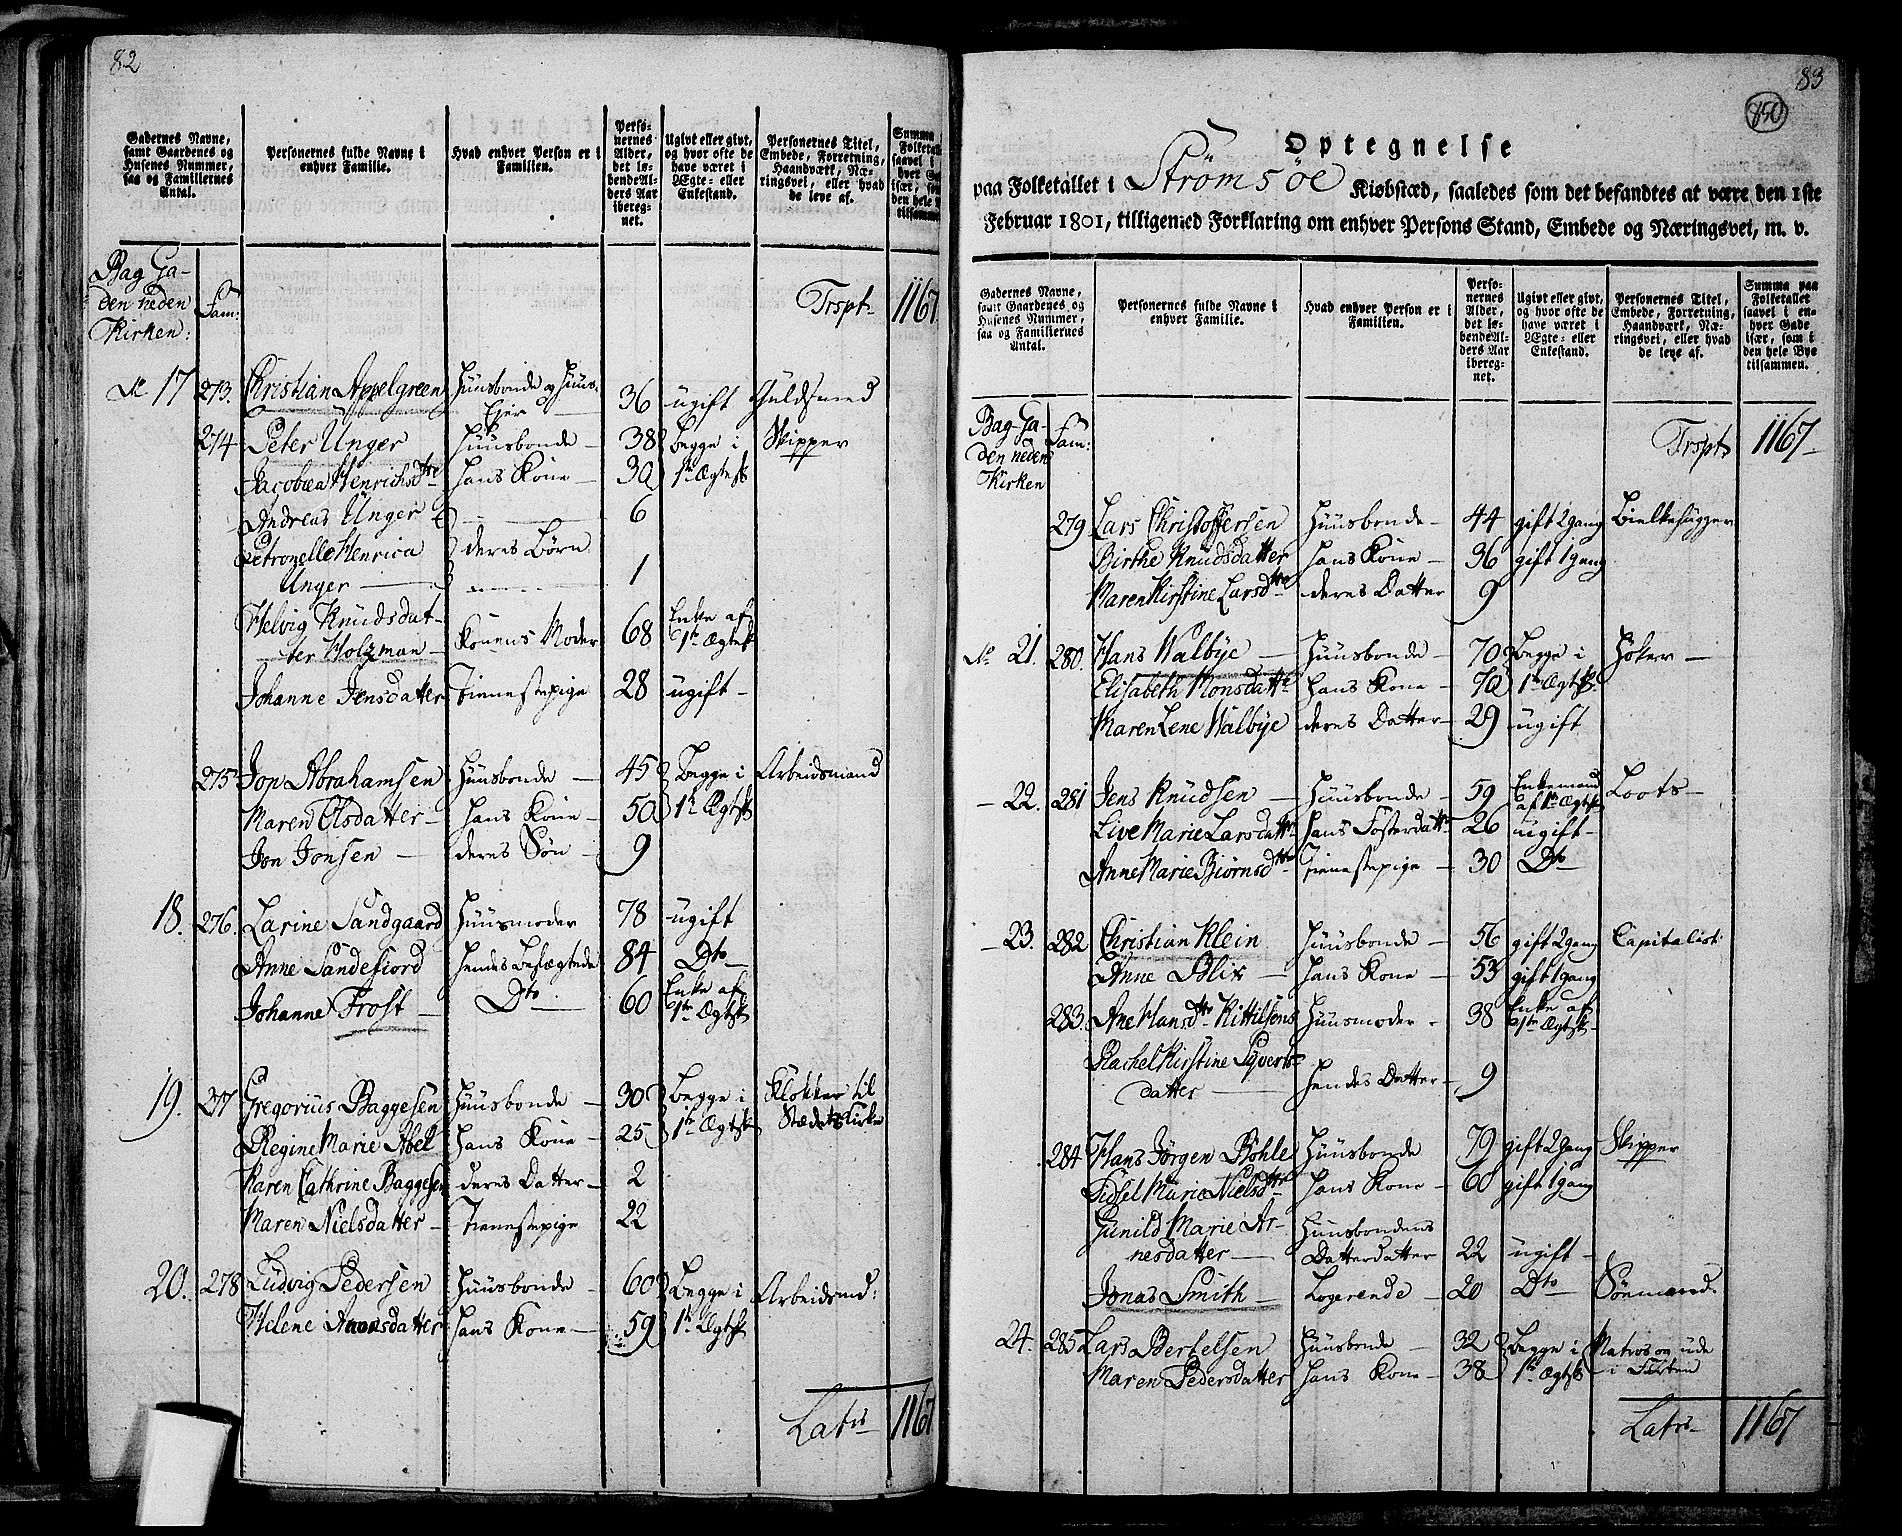 82
Gadernes Navne,
samt Gaardenes og
Husenes Nummer,
saa og Familiernes
Antal.
Personernes fulde Navne i
enhver Familie.
Hvad enhver Person er i
Familien.
Perso-
nernes
Alder,
det lø-
bende Al-
ders Aar
iberegnet.
Ugivt eller givt,
og hvor ofte de
have været i
Ægte- eller
Enkestand.
Personernes Titel,
Embede, Forretning,
Haandværk, Næ-
ringsvei, eller hvad
de leve af.
Bag Ga-
den neden
Kirken:
Fam:
Trspt 1167
No 17 273. Christian Appelgreen Huusbonde og Huus-
Ejer 36 ugift Guldsmed
274 Peter Unger Huusbonde 38 begge i Skipper
Jacobæa Henrichsdtr hans Kone 30 1te Ægtesk
Andreas Unger 6
Petronelle Henrica deres Børn
Unger 1
Helvig Knudsdat-
ter Holzman Konens Moder 68 Enke af 1te Ægtesk
Johanne Jensdatter Tienestepige 28 ugift
275 Jon Abrahamsen Huusbonde 45 begge i Arbeidsmand
Maren Olsdatter hans Kone 50 1te Ægtsk
Jon Jonsen deres Søn 9
18. 276. Larine Sandgaard Huusmoder 78 ugift
Anne Sandefiord hendes beslægtede 84 Dto
Johanne Frost Dto 60 Enke af 1te Ægtsk
19. 277 Gregorius Baggesen Huusbonde 30 begge i Klokker til
Regine Marie Abel hans Kone 25 1te Ægtsk Stædets Kirke
Karen Cathrine Baggesen deres Datter 2
Maren Nielsdatter Tienestepige 22
20. 278 Ludvig Pedersen Huusbonde 60 begge i Arbeidsmd:
Helene hans Kone 59 1te Ægtsk
Lats 1167
83
150
Optegnelse
paa Folketallet i Strømsöe Kiøbstæd, saaledes som det befandtes at være den 1ste
Februar 1801, tilligemed Forklaring om enhver Persons Stand, Embede og Næringsvei, m. v.
Gadernes Navne,
samt Gaardenes og
Husenes Nummer,
saa og Familiernes
Antal.
Personernes fulde Navne i
enhver Familie.
Hvad enhver Person er i
Familien.
Perso-
nernes
Alder,
det lø-
bende Al-
ders Aar
iberegnet.
Ugivt eller givt,
og hvor ofte de
have været i
Ægte- eller
Enkestand.
Personernes Titel,
Embede, Forretning,
Haandværk, Næ-
ringsvei, eller hvad
de leve af.
Summa paa
Folketallet
saavel i en-
hver Gade
især, som i
den hele Bye
tilsammen.
Bag-Ga-
den neden
Kirken
Fam:
Trspt 1167
279 Lars Christoffersen Huusbonde 44 gift 2 gang Bielkehugger
Birthe Knudsdatter hans Kone 36 gift 1 gang
Maren Kirstine Larsdtr deres Datter 9
No 21. 280. Hans Walbye Huusbonde 70 begge i Høker
Elisabeth Monsdattr hans Kone 70 1te Ægtsk.
Maren Lene Walbye deres Datter 29 ugift
22. 281 Jens Knudsen Huusbonde 59 Enkemand af 1te Ægtsk Loots
Live Marie Larsdattr hans Fosterdattr 26 ugift
Anne Marie Biørnsdtr Tienestepige 30 Dto
23. 282 Christian Klein Huusbonde 56 gift 2 gang Capitalist:
Anne Blix hans Kone 53 gift 1 gang
283. Ane Hansdtr Kittilsens Huusmoder 38 Enke af 1te Ægtsk
Rachel Kirstine Syverts-
datter hendes Datter 9
284 Hans Jørgen Bøhle Huusbonde 79 gift 2 gang Skipper
Sidsel Marie Nielsdtr hans Kone 60 gift 1 gang
Gunild Marie Ar-
nesdatter Huusbondens
Datterdatter 22 ugift
Jonas Smith Logerende 20 Dto Søemand.
24. 285 Lars Bertelsen Huusbonde 32 begge i Matros og ude
Maren Pedersdatter hans Kone 38 1te Ægtsk i Flaaten
Lats 1167